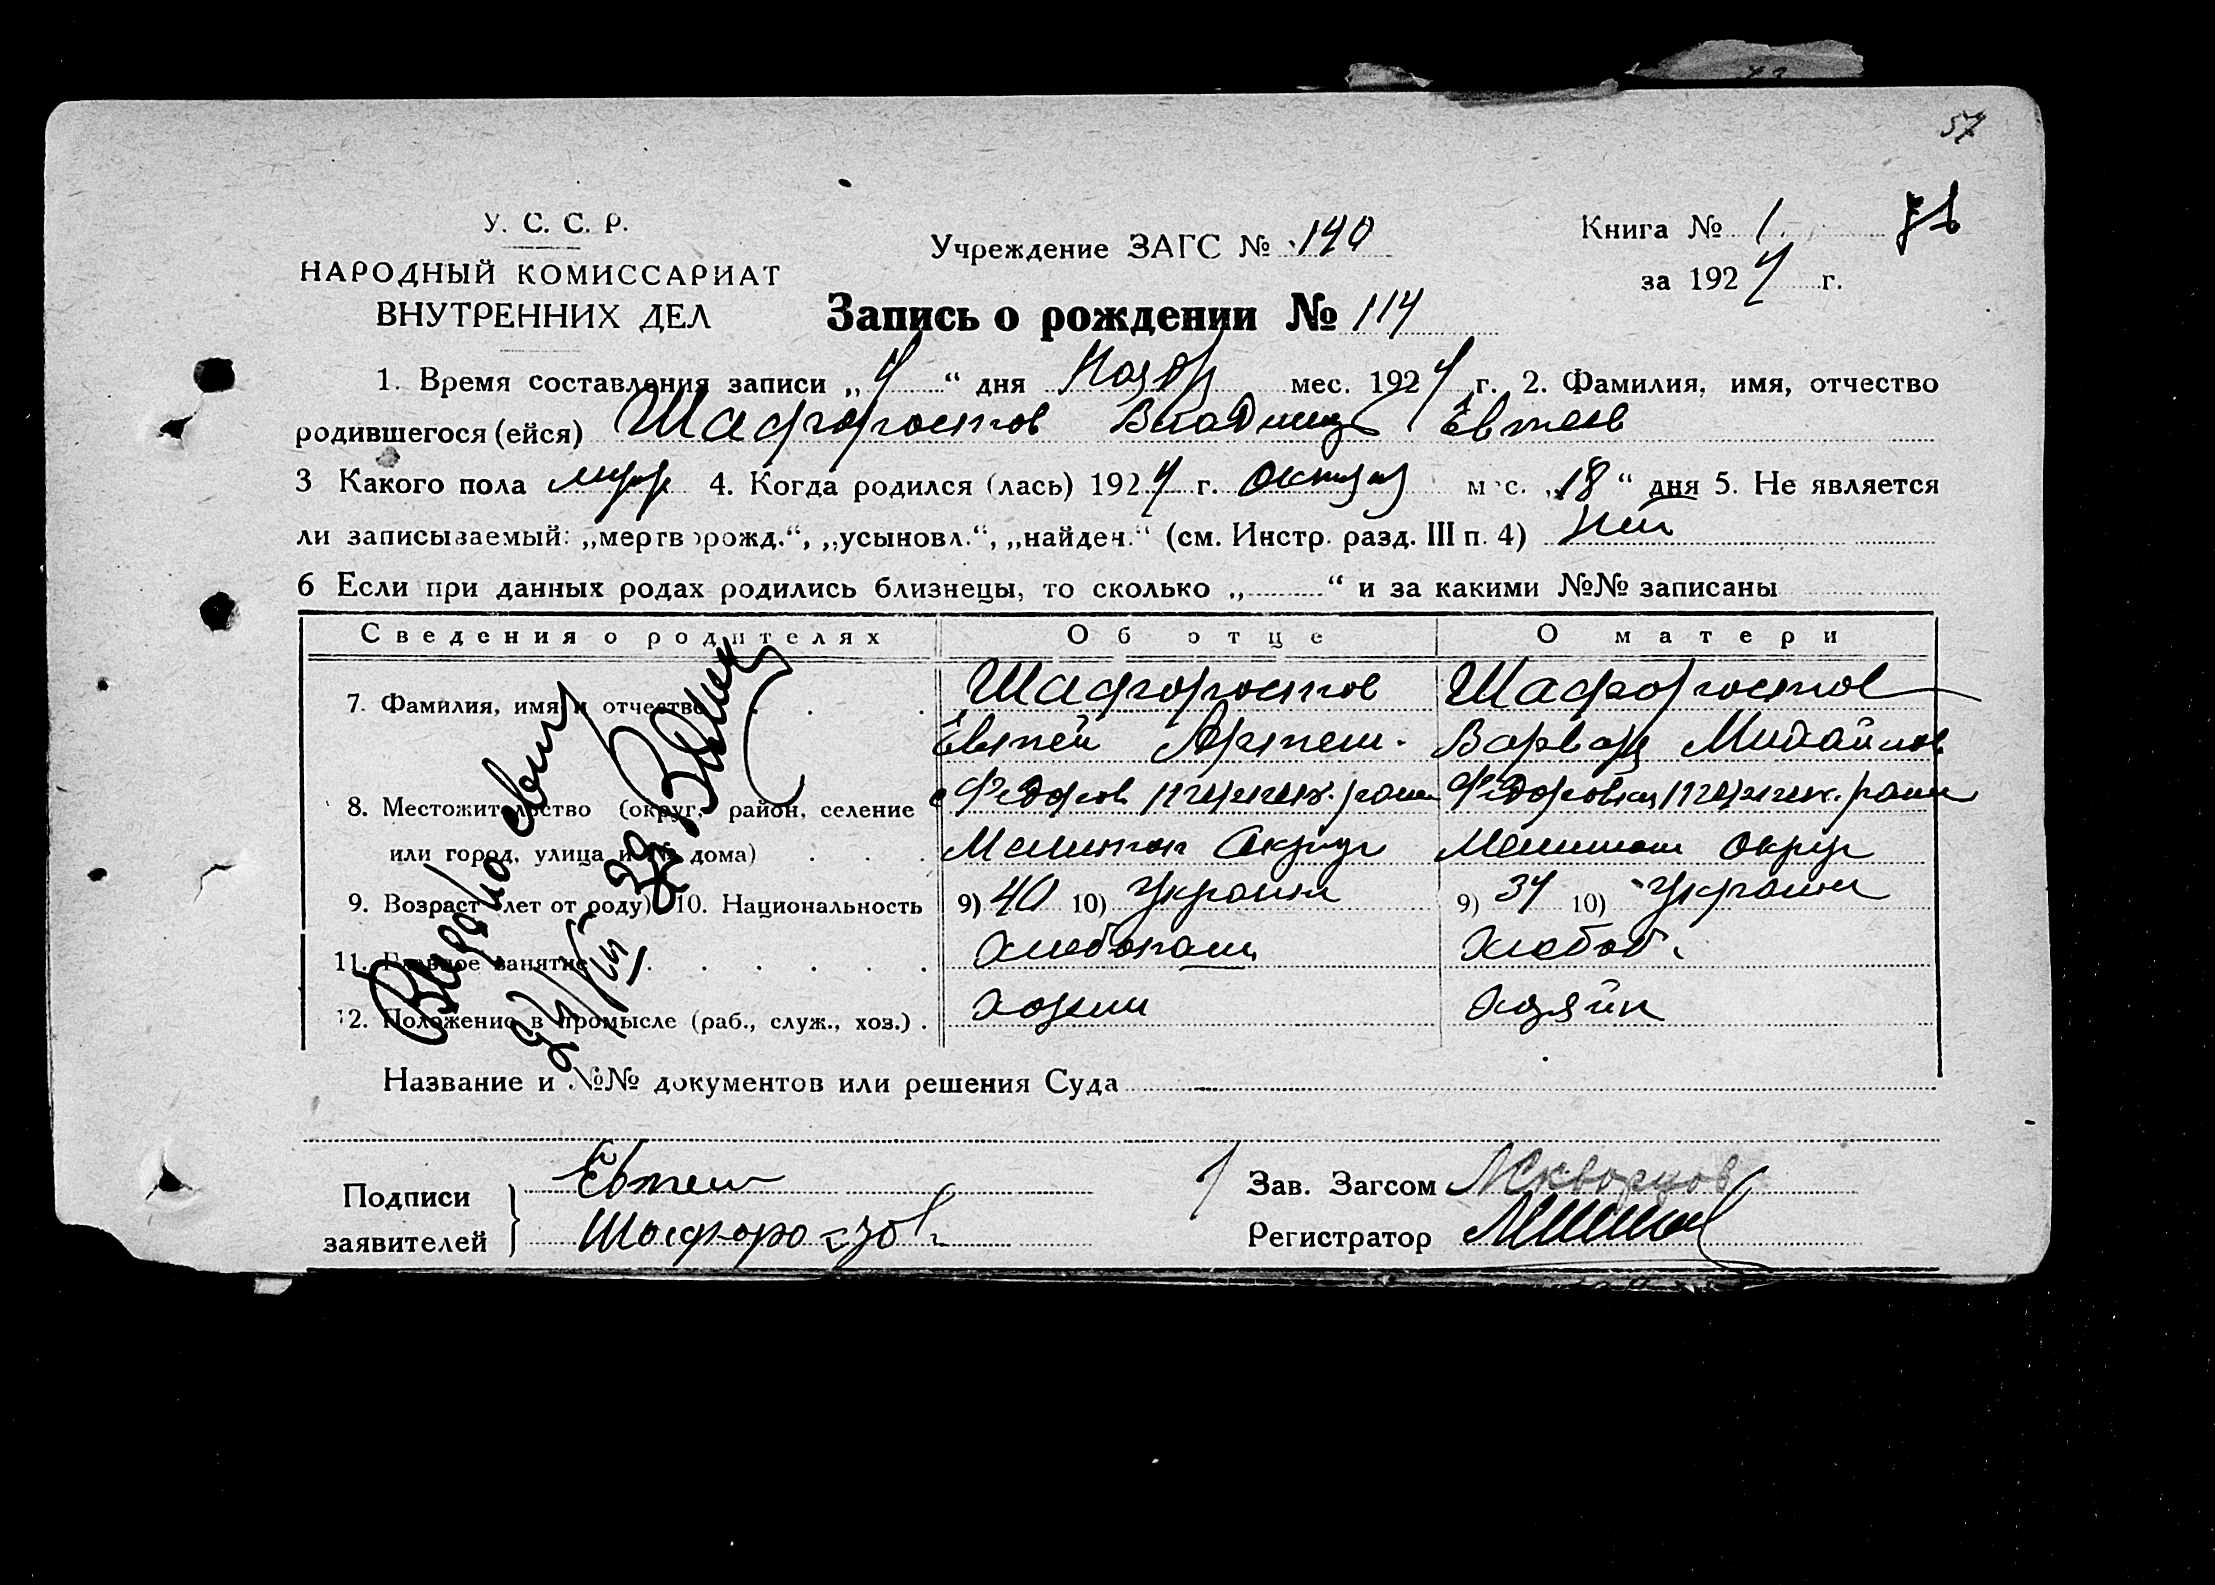 57
У. С. С. Р.
НАРОДНЫЙ КОМИССАРИАТ
ВНУТРЕННИХ ДЕЛ
Учреждение ЗАГС № 140
Книга № 1
за 1924 г.
Запись о рождении № 114
1. Время составления записи „4“ дняНоябр мес. 1924 г. 2. Фамилия, имя, отчество
родившегося (ейся) Шафоростов Владимир Евтеев
3 Какого пола муж 4. Когда родился (лась) 1924 г. октяр мес. „18“ дня 5. Не является
ли записываемый: „мертворожд.“, „усыновл.“, „найден.“ (см. Инстр. разд. III п. 4) Нет
6 Если при данных родах родились близнецы, то сколько „ “ и за какими №№ записаны
Сведения о родителях Об отце О матери
7. Фамилия, имя и отчество Шафоростов Шафоростов
Евтей Артем. Варвар Михайлов
8. Местожительство (округ, район, селение Федоров район Федоровка район
или город, улица и № дома) Мелитоп Округ Мелитоп округ
9. Возраст (лет от роду) 10. Национальность 9) 40 10) Украин 9) 34 10) Украин
11. Главное занятие Хлебопаш Хлебоб.
12. Положение в промысле (раб., служ., хоз.) хозяин Хозяйк
Название и №№ документов или решения Суда
Подписи заявителей Евтей
Шафоростов
Зав. Загсом Скворцов
Регистратор